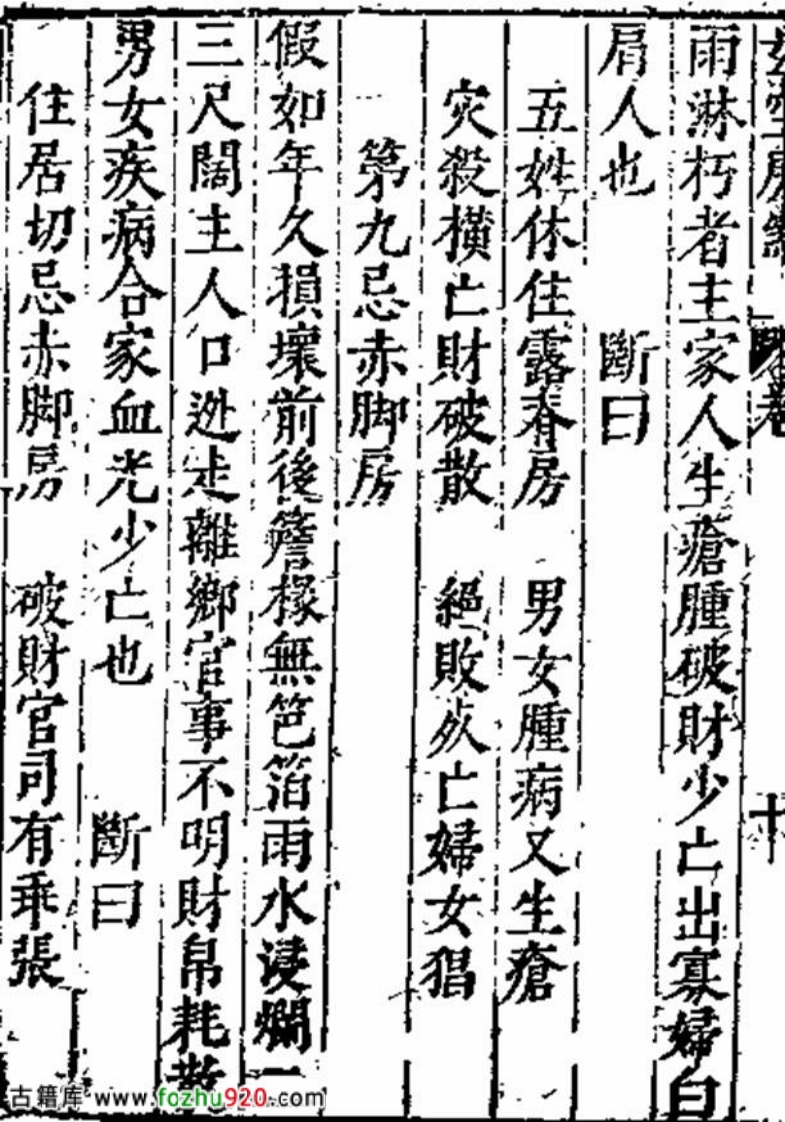 十
雨淋朽者主家人生瘡腫破財少亡出寡婦白
屓人也　斷曰
五姓休住露脊房　男女腫病又生瘡
灾殺横亡財破散　絕敗从亡婦女猖
第九忌赤脚房
假如年久損壞前後簷椽無笆箔雨水浸爛二
三尺闊主人口迯走離鄉官事不明財帛耗散
男女疾病合家血光少亡也　斷曰
住居切忌赤脚房　破財官司有乖張
古籍库 www.fozhu920.com